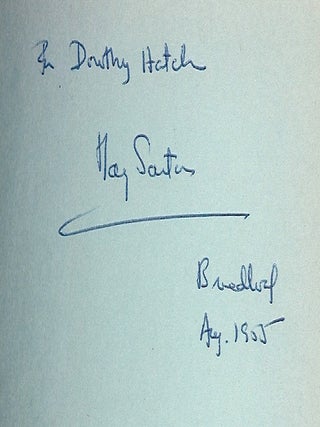 For Dorothy Hatch
May Sarton
Breadloaf
Aug. 1955